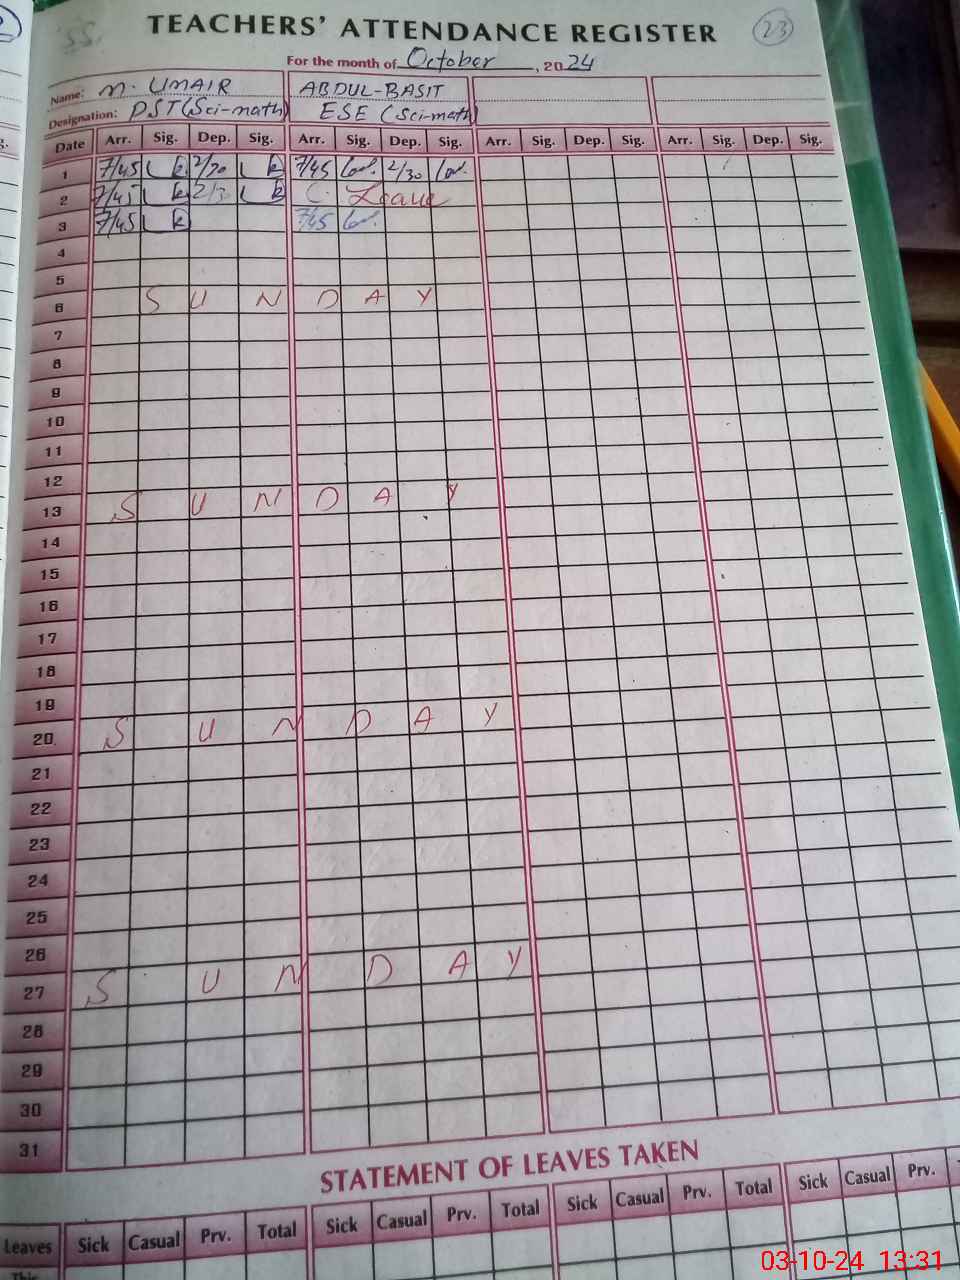 TEACHERS' ATTENDANCE REGISTER
23
For the month of October, 2024
Name: M. UMAIR ABDUL-BASIT
Designation: PST (Sci-math) ESE (Sci-math)
Date Arr. Sig. Dep. Sig. Arr. Sig. Dep. Sig. Arr. Sig. Dep. Sig. Arr. Sig. Dep. Sig.
1 7/45 2/30 7/45 2/30
2 7/45 2/30 C. Leave
3 7/45 7/45
4
5
6 SUNDAY
7
8
9
10
11
12
13 SUNDAY
14
15
16
17
18
19
20 SUNDAY
21
22
23
24
25
26
27 SUNDAY
28
29
30
31
STATEMENT OF LEAVES TAKEN
Leaves Sick Casual Prv. Total Sick Casual Prv. Total Sick Casual Prv. Total Sick Casual Prv.
This
03-10-24 13:31